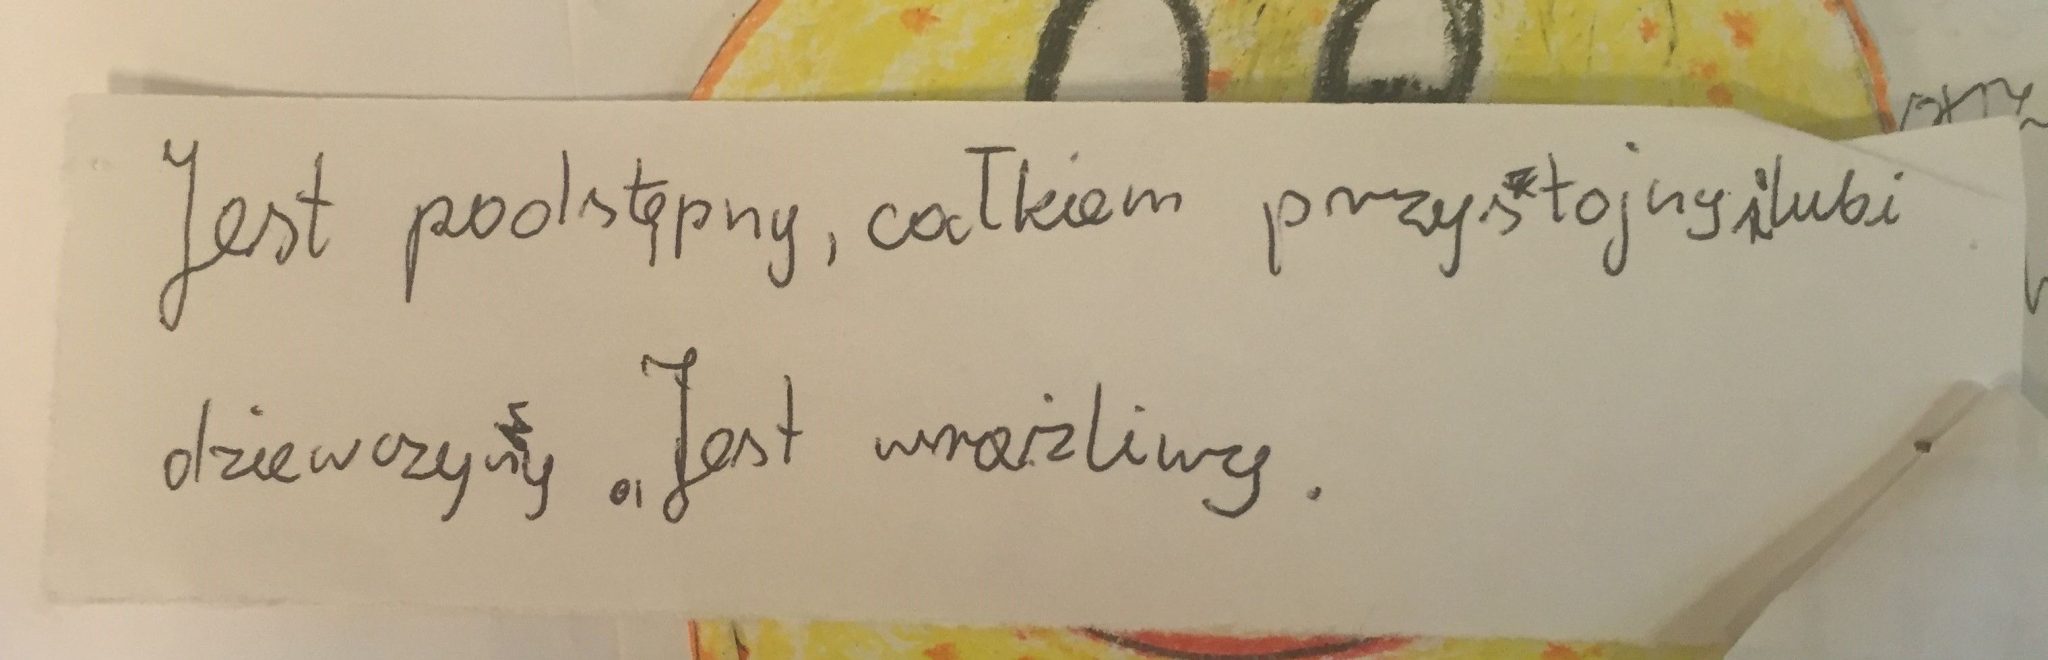 Jest podstępny, całkiem przystojny i lubi
dziewczyny. Jest wrażliwy.